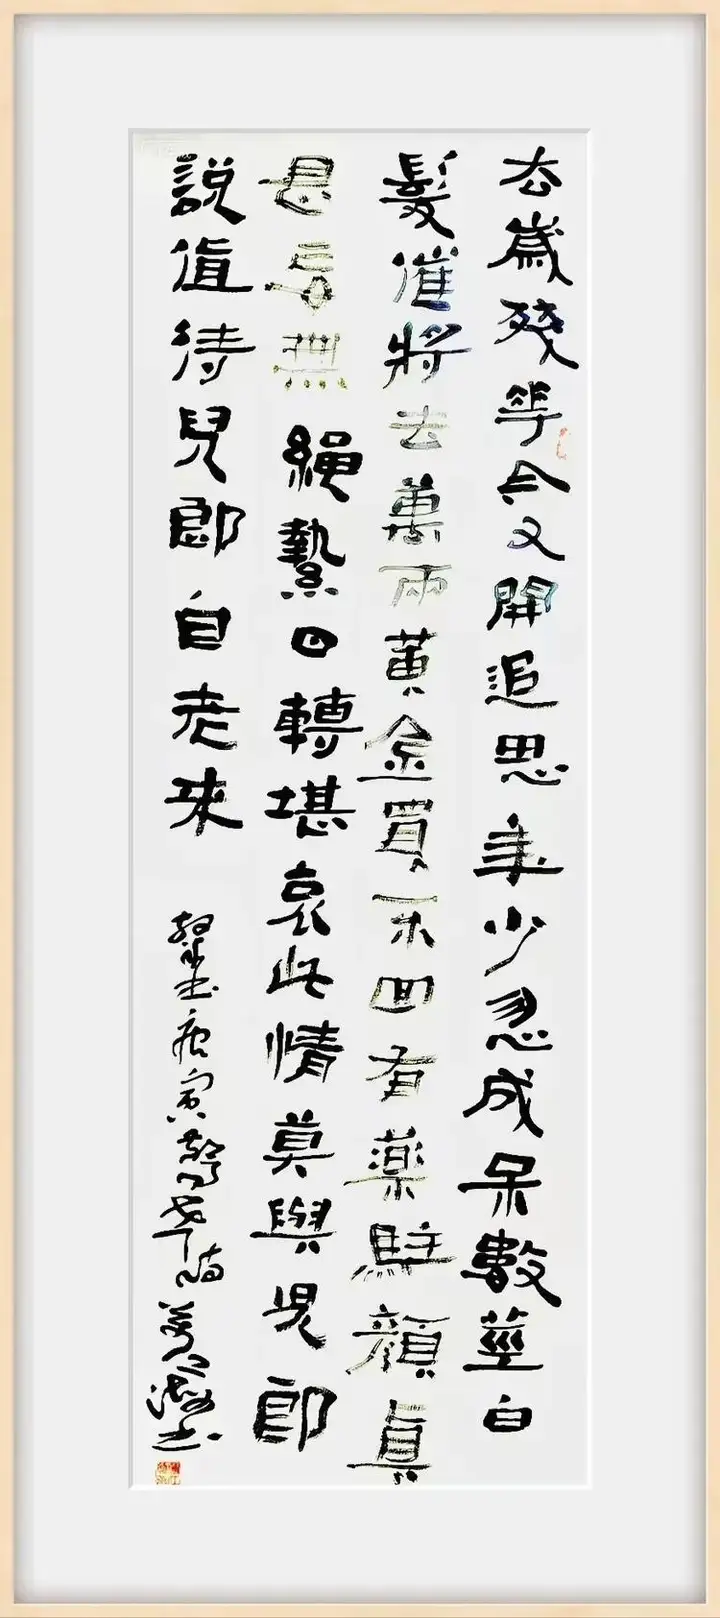 去歲殘花今又開追思年少忽成呆數莖白
髮催將去萬兩黃金買不回有藥駐顏真
是妄無繩繫日轉堪哀此情莫與兒郎
說值待兒郎自老來
書唐寅警世詩